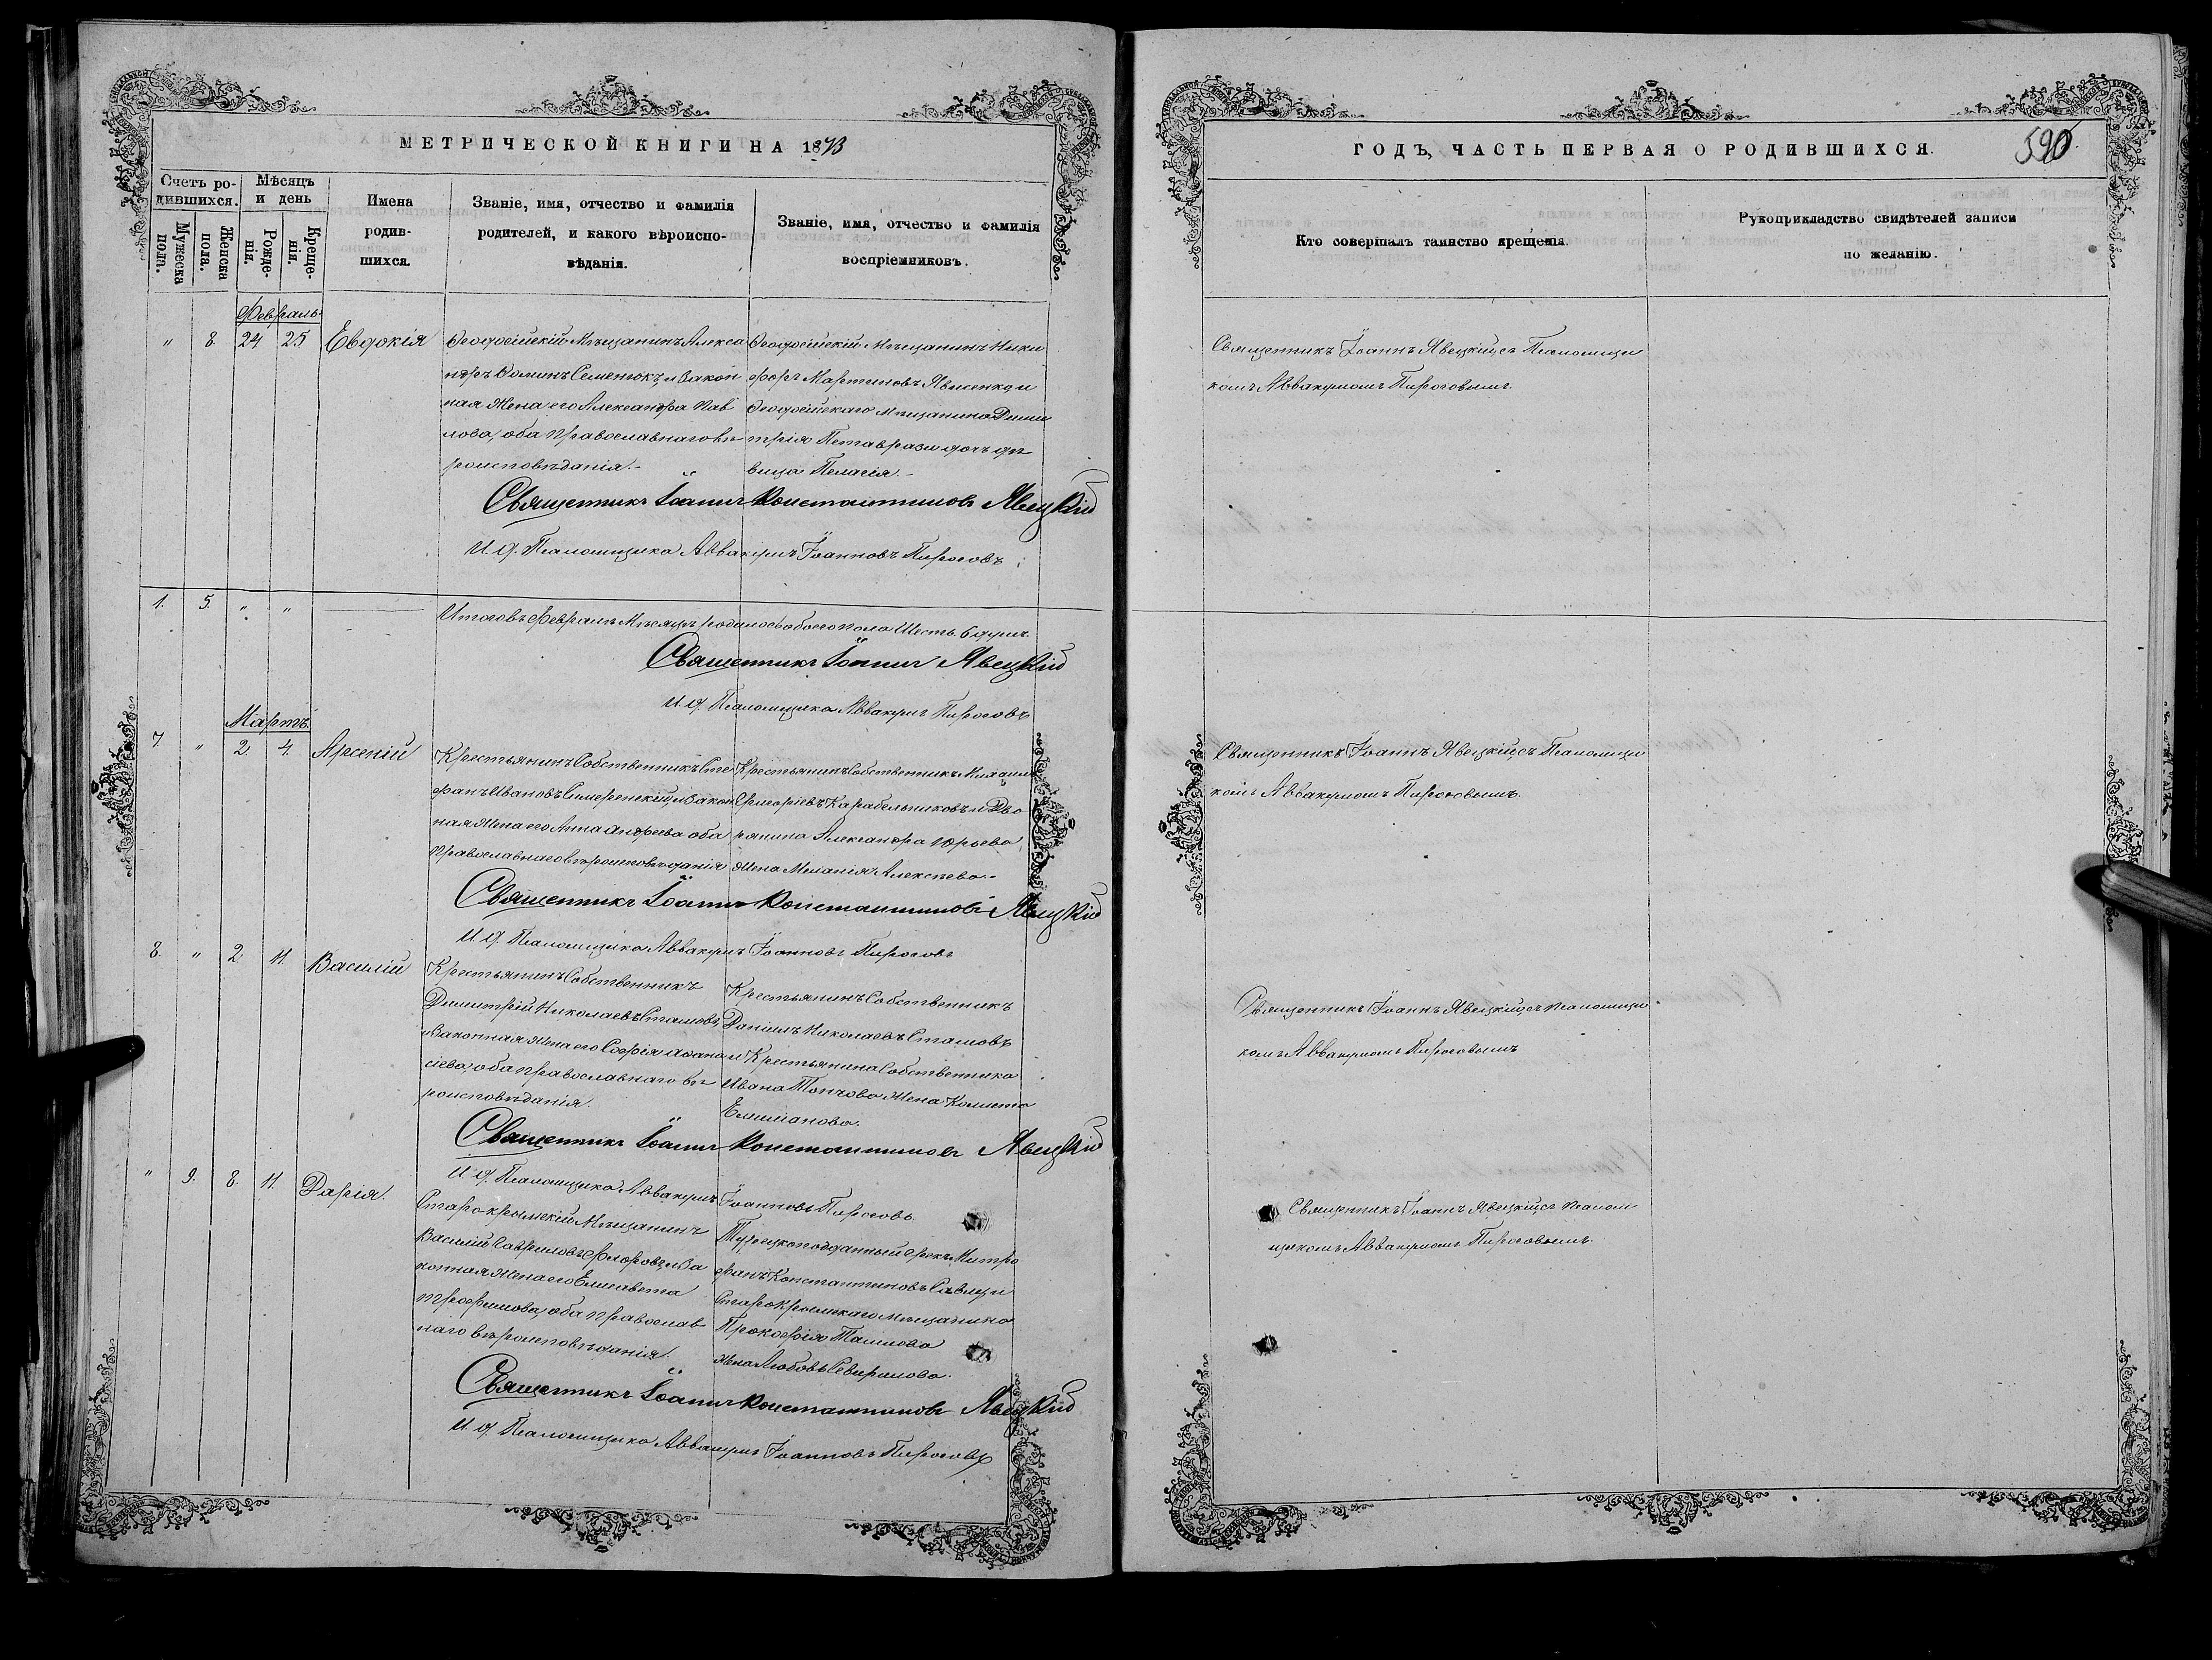 МЕТРИЧЕСКОЙ КНИГИ НА 1873
Счетъ родившихся.
Мужеска пола.
Женска пола.
Мѣсяцъ и день
Рожденія.
Крещенія.
Имена родившихся.
Званіе, имя, отчество и фамилія
родителей, и какого вѣроиспо-
вѣданія.
Званіе, имя, отчество и фамилія
воспріемниковъ.
Февраль
" 8 24 25 Евдокія
Ѳеодосійскій Мѣщанинъ Алекса
ндръ Ѳоминъ Семенюкъ, и закон
ная жена его Александра Пав
лова, оба православнаго вѣ
роисповѣданія.-
Ѳеодосійскій Мѣщанинъ Ники
форъ Мартиновъ и
Ѳеодосійскаго мѣщанина Дими
трія дочь дѣ
вица Пелагія.-
Священникъ Іоаннъ Константиновъ Явецкій
И. д. Псаломщика Аввакумъ Іоанновъ Пироговъ
1. 5. " "
Итого въ Февралѣ Мѣсяцѣ родилось обоего пола Шесть 6 душъ.
Священникъ Іоаннъ Явецкій
И. д. Псаломщика Аввакумъ Пироговъ
Мартъ.
7. " 2. 4. Арсеній
Крестьянинъ Собственникъ Сте
фанъ Ивановъ и закон
ная жена его Анна Андреева оба
православнаго вѣроисповѣданія
Крестьянинъ Собственникъ Михаилъ
Карабельниковъ и Дво
рянина Александра Юрьева
жена Меланія Алексѣева.-
Священникъ Іоаннъ Константиновъ Явецкій
И. д. Псаломщика Аввакумъ Іоанновъ Пироговъ
8. " 2. 11. Василій
Крестьянинъ Собственникъ
Димитрій Николаевъ Стамовъ,
и законная жена его Софія Аѳана
сіева, оба православнаго вѣ
роисповѣданія.
Крестьянинъ Собственникъ
Даніилъ Николаевъ Стамовъ
и Крестьянина Собственника
Ивана Топчова жена
Емиліанова.
Священникъ Іоаннъ Константиновъ Явецкій
И. д. Псаломщика Аввакумъ Іоанновъ Пироговъ.
" 9. 8. 11. Дарія.
Старокрымскій Мѣщанинъ
Василій Гавриловъ Флоровъ, и за
конная жена его Елисавета
Трофимова, оба православ
наго вѣроисповѣданія.
Турецкоподданный Грекъ Митро
фанъ Константиновъ и
Старокрымскаго мѣщанина
Прокофія
жена Любовь
Священникъ Іоаннъ Константиновъ Явецкій
И. д. Псаломщика Аввакумъ Іоанновъ Пироговъ
ГОДЪ, ЧАСТЬ ПЕРВАЯ О РОДИВШИХСЯ.
590
Кто совершалъ таинство крещенія.
Рукоприкладство свидѣтелей записи
по желанію.
Священникъ Іоаннъ Явецкій съ Псаломщи
комъ Аввакумомъ Пироговымъ.
Священникъ Іоаннъ Явецкій съ Псаломщи
комъ Аввакумомъ Пироговымъ.
Священникъ Іоаннъ Явецкій съ Псаломщи
комъ Аввакумомъ Пироговымъ
Священникъ Іоаннъ Явецкій съ Псалом
щикомъ Аввакумомъ Пироговымъ.